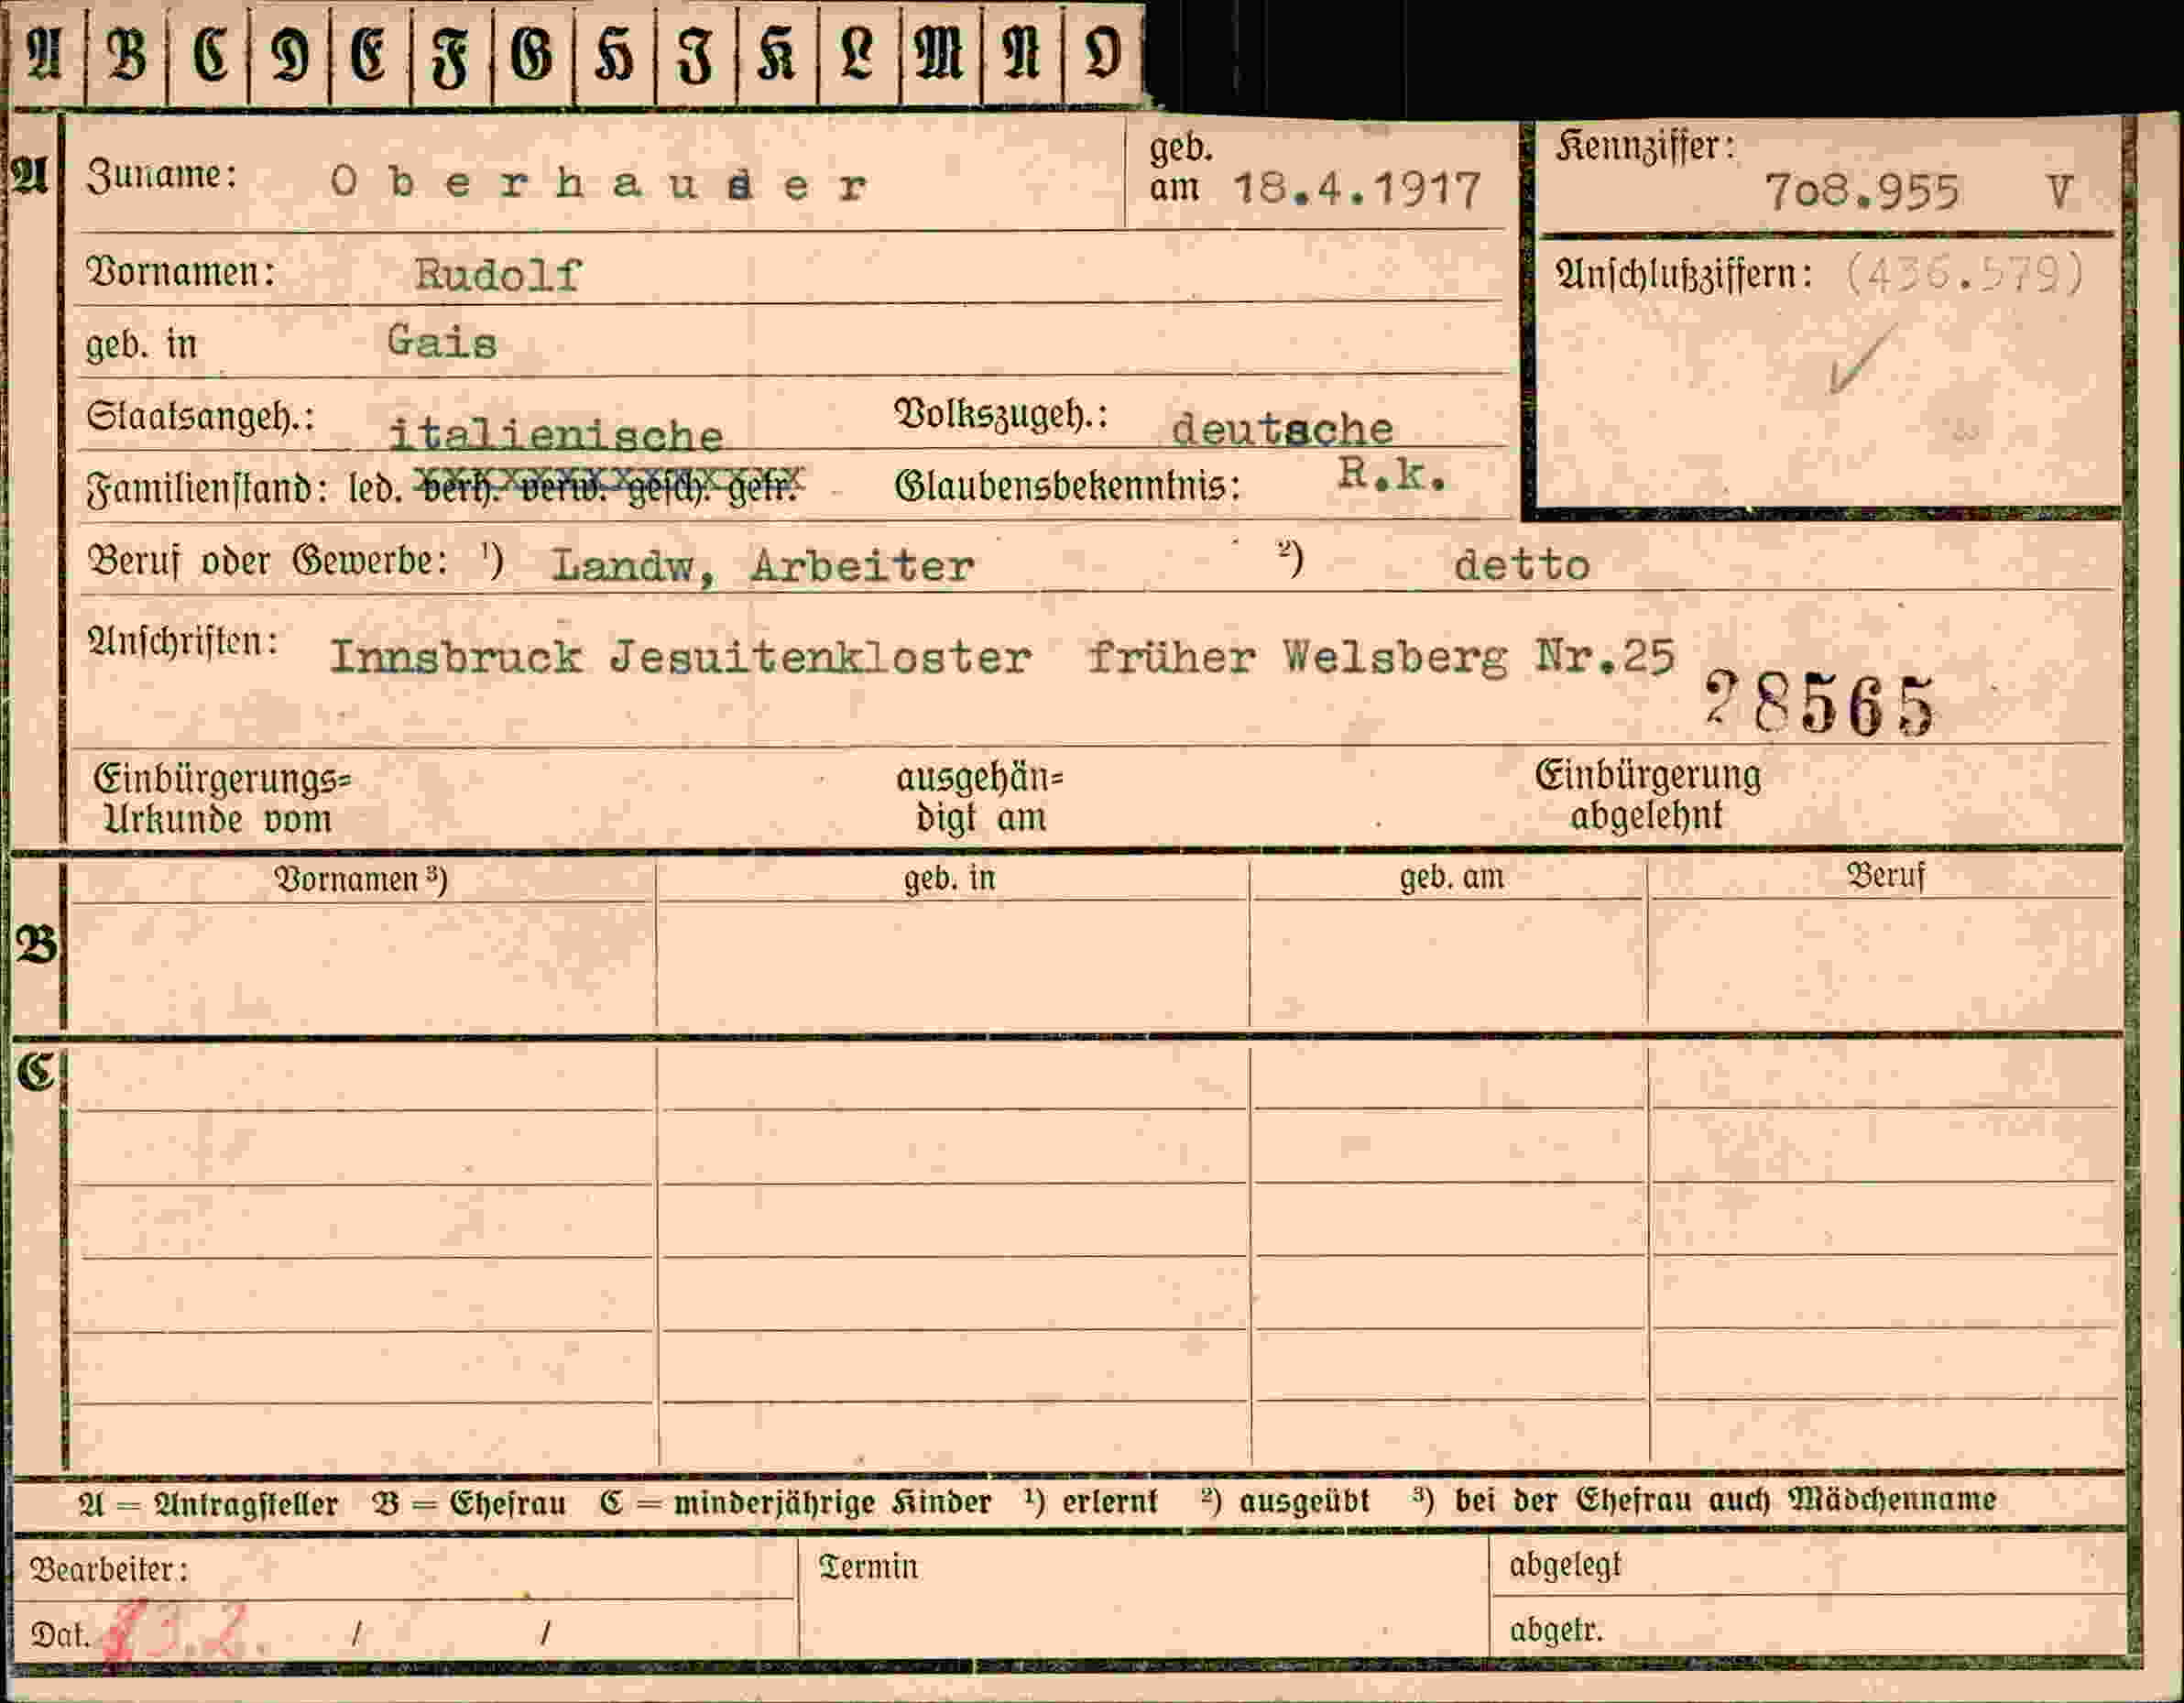 A B C D E F G H J K L M N O
A Zuname: Oberhauser geb. am 18.4.1917 Kennziffer: 7o8.955 V
Vornamen: Rudolf Anschlußziffern: (436.579)
geb. in Gais
Staatsangeh.: italienische Volkszugeh.: deutsche
Familienstand: led. verh. verw. gesch. getr. Glaubensbekenntnis: R.k.
Beruf oder Gewerbe: ¹) Landw, Arbeiter ²) detto
Anschriften: Innsbruck Jesuitenkloster früher Welsberg Nr.25
28565
Einbürgerungs= ausgehän= Einbürgerung
Urkunde vom digt am abgelehnt
Vornamen ³) geb. in geb. am Beruf
B
C
A = Antragsteller B = Ehefrau C = minderjährige Kinder ¹) erlernt ²) ausgeübt ³) bei der Ehefrau auch Mädchenname
Bearbeiter: Termin abgelegt
Dat. / / abgetr.